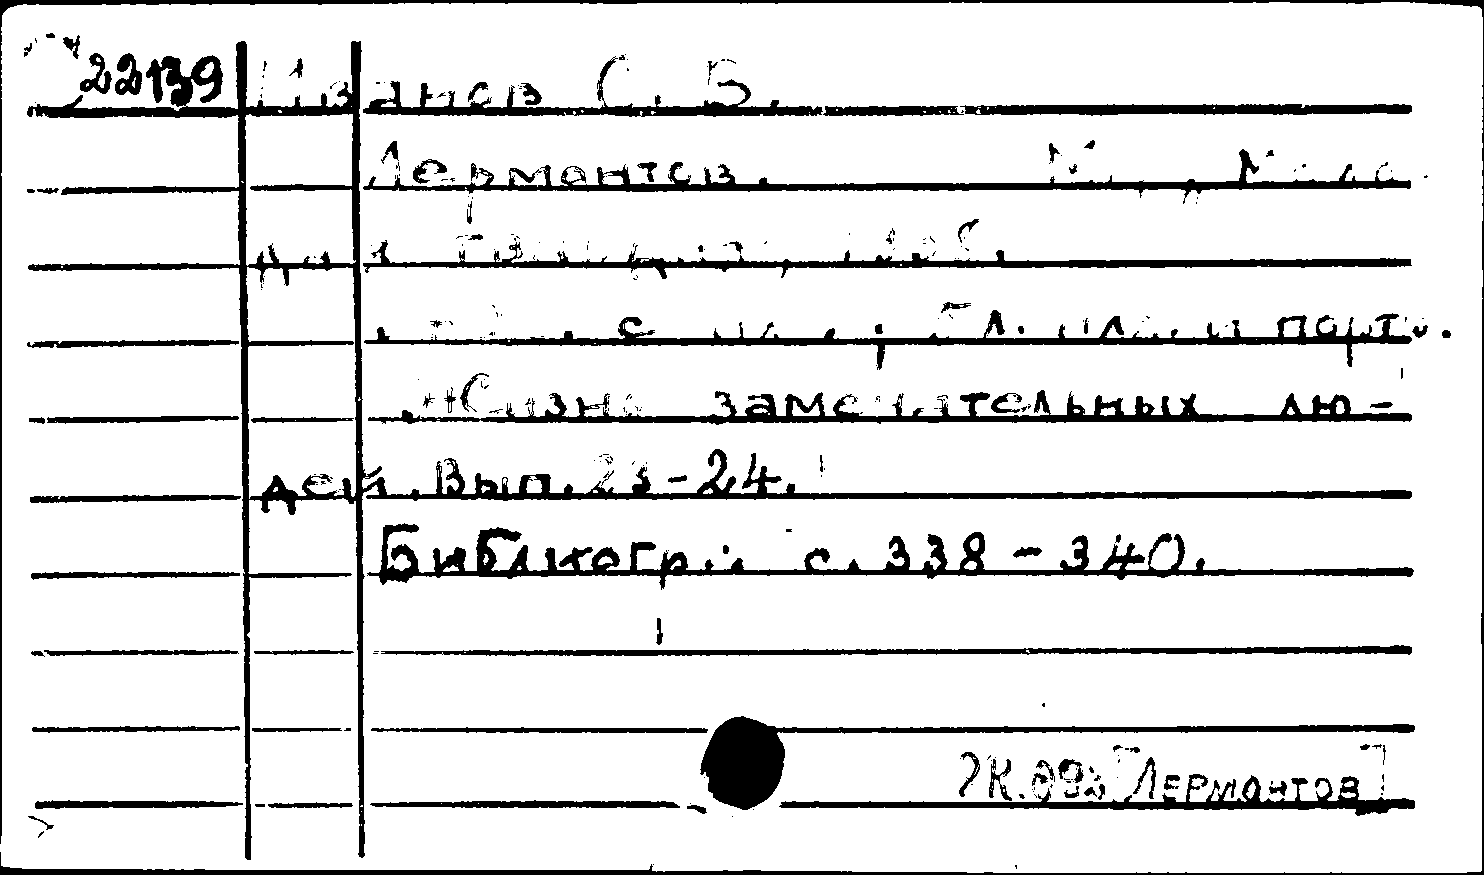 22139 Иванов С. В.
Лермонтов. М., „Моло
дая гвардия,
с ил.; 5 л. илл. и портр.
"Жизнь замечательных лю-
дей. Вып. 23-24.
Библиогр.: с. 338 - 340.
[Лермонтов]